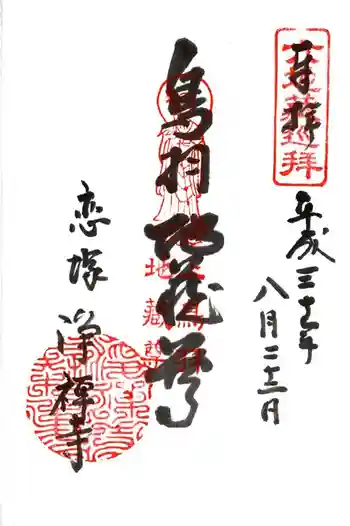 六地蔵巡拝
奉拝
平成三十年
八月二十二日
鳥羽地蔵尊
地蔵尊
恋塚
浄禅寺